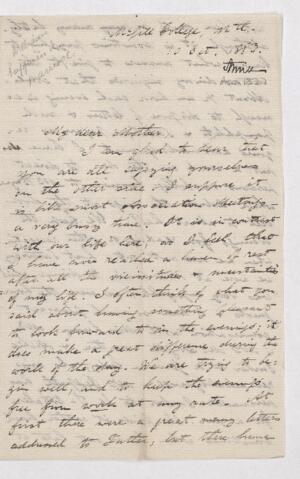 McGill College, Mtl.
Oct. 1883.
My dear Mother
I am glad to hear that
you are all enjoying yourselves
on the other side. I suppose it
is like most Association meetings -
a very busy time. It is in contrast
with our life here, as I feel that
I have now reached a haven of rest
after all the vicissitudes & uncertainties
of my life. I often think of what you
said about having something pleasant
to look forward to in the evenings; it
does make a great difference during the
work of the day. We are trying to be-
gin well and to keep the evenings
free from work at any rate. At
first there were a great many letters
addressed to Father, but these have